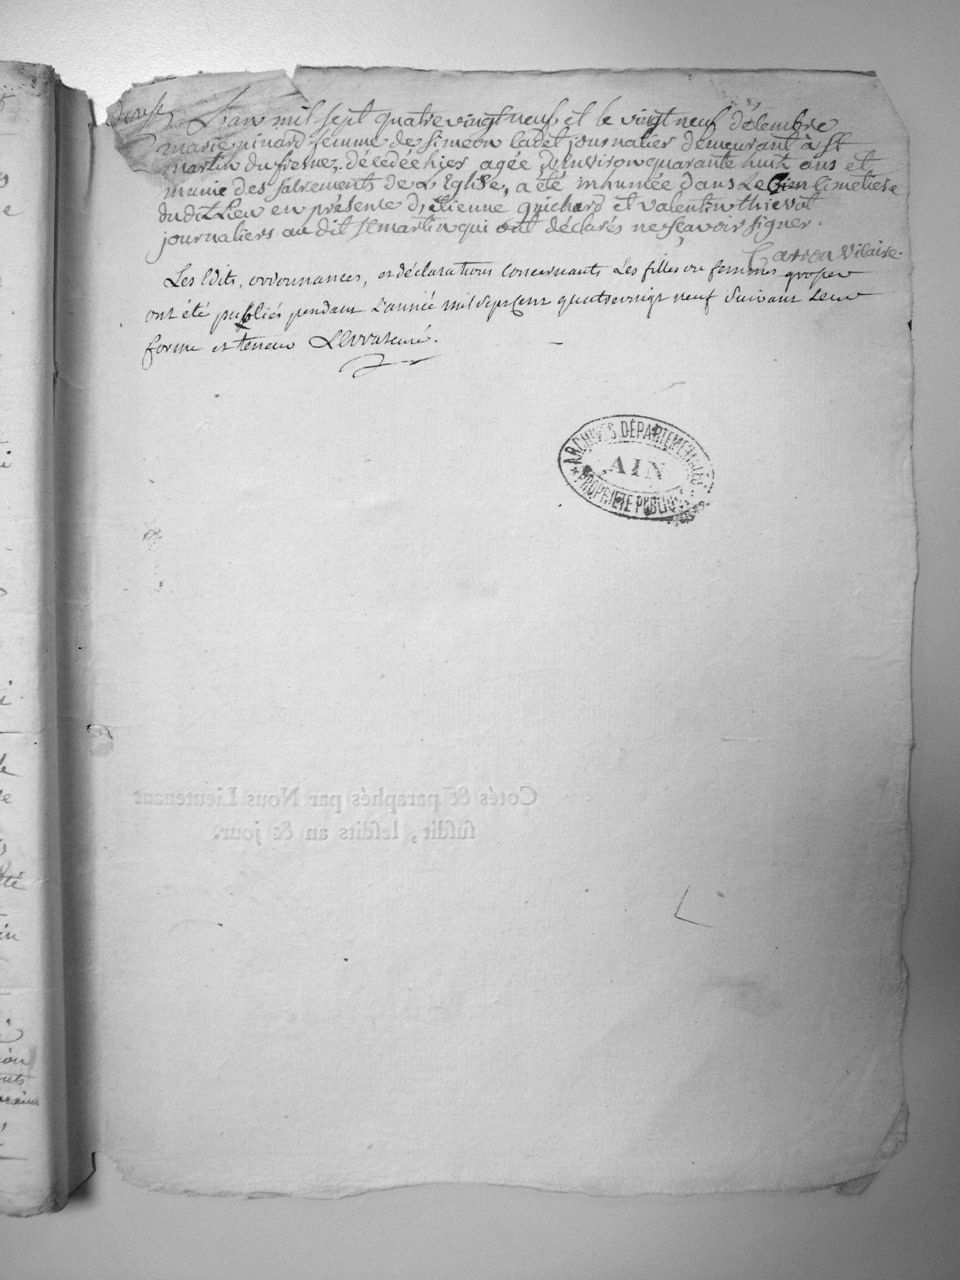 L'an mil sept quatre vingt neuf et le vingt neuf décembre
marie ninard femme de siméon cadet journalier demeurant à st
martin du fresnez, décédée hier agée d'environ quarante huit ans et
munie des sacrements de L'Eglise, a été inhumée dans le cimetiere
dudit Lieu en présence d'etienne guichard et valentin thievot
journaliers au dit st martin qui ont déclarés ne sçavoir signer.
Carron Vicaire.
Les Edits, ordonnances, et déclarations concernants Les filles ou femmes grosses
ont été publiés pendant L'année mil sept cent quatre vingt neuf suivant Leur
forme et teneur
ARCHIVES DÉPARTEMENTALES
AIN
PROPRIÉTÉ PUBLIQUE
Cotés & paraphés par Nous Lieutenant
susdit, lesdits an & jour.